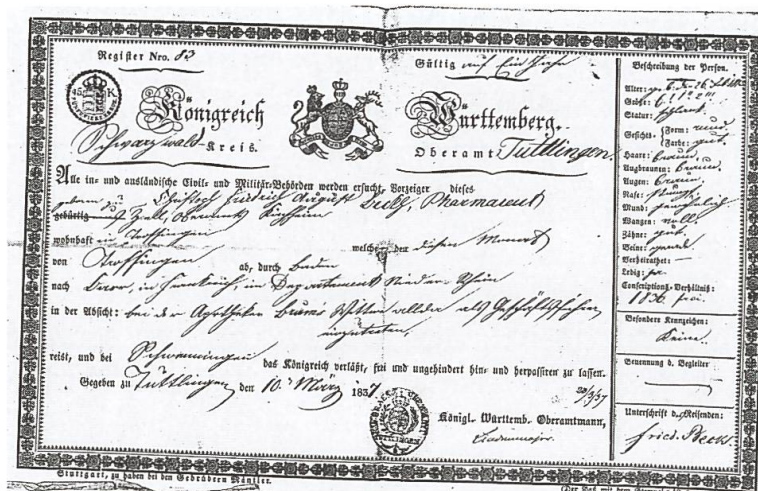 Register Nro. 83
Gültig auf Ein Jahr
45 K
Königreich Württemberg.
Schwarzwald-Kreis. Oberamt Tuttlingen.
Alle in- und ausländische Civil- und Militär-Behörden werden ersucht, Vorzeiger dieses
Friedrich August Beckh, Pharmaceut
gebürtig Zell, Oberamt Kirchheim
wohnhaft in Trossingen welcher den diesen Monat
von Trossingen ab, durch Baden
nach Barr, in Frankreich, in Departement Nieder-Rhein
in der Absicht: bei der Apotheker Wittwe allda als Geschäftsführer
einzutreten,
reist, und bei Schwenningen das Königreich verläßt, frei und ungehindert hin- und herpassiren zu lassen.
Gegeben zu Tuttlingen den 10. März 1837
Königl. Württemb. Oberamtmann,
Beschreibung der Person.
Alter:
Größe: 6'
Statur: schlank
Gesichts- Form: rund
Farbe: gut
Haare: braun
Augbraunen: braun
Augen: braun
Nase:
Mund: gewöhnlich
Wangen: voll
Zähne: gut
Beine: gerade
Verheirathet: —
Ledig: ja
Conscriptions-Verhältniß:
1836 frei.
Besondere Kennzeichen:
Keine.
Benennung d. Begleiter
Unterschrift d. Reisenden:
Fried. Beckh.
Stuttgart, zu haben bei den Gebrüdern Mäntler.